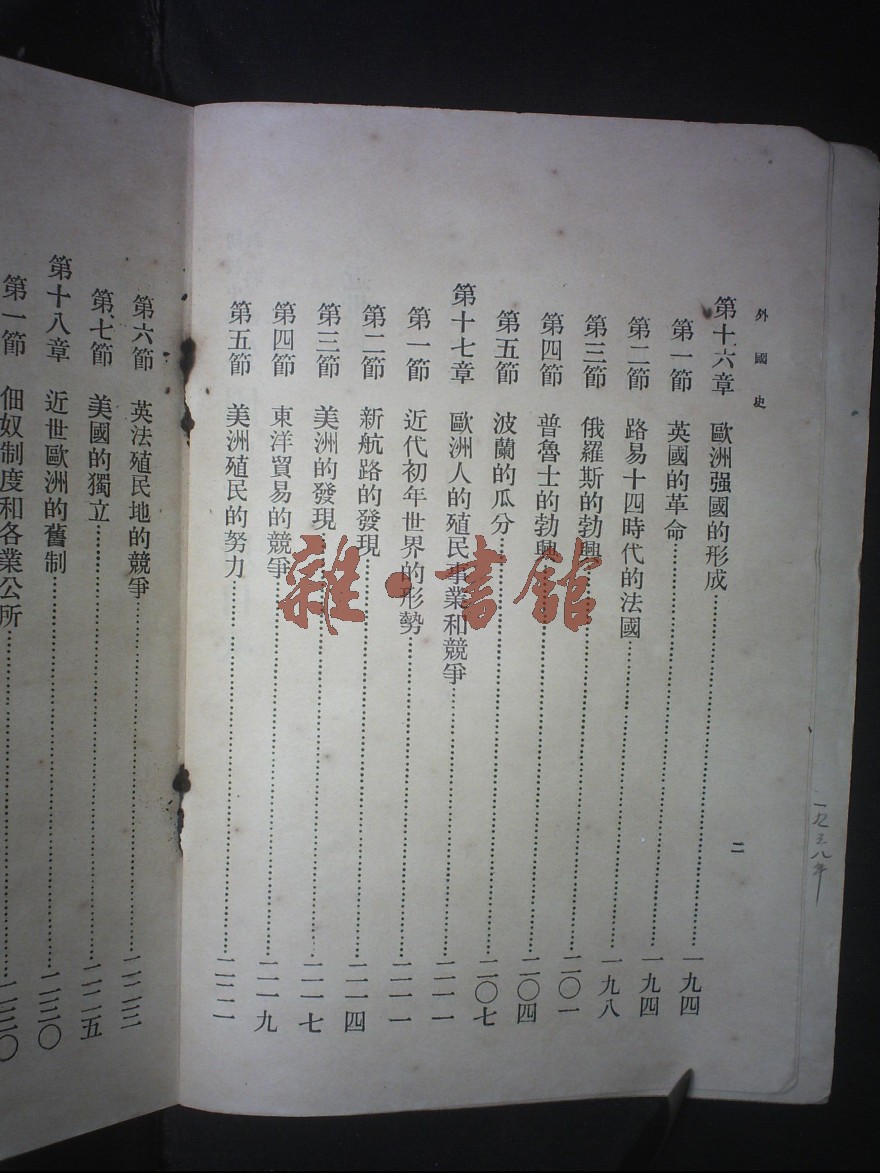 外國史
第十六章 歐洲强國的形成……一九四
第一節 英國的革命……一九四
第二節 路易十四時代的法國……一九八
第三節 俄羅斯的勃興……二〇一
第四節 普魯士的勃興……二〇四
第五節 波蘭的瓜分……二〇七
第十七章 歐洲人的殖民事業和競爭……二一一
第一節 近代初年世界的形勢……二一一
第二節 新航路的發現……二一四
第三節 美洲的發現……二一七
第四節 東洋貿易的競爭……二一九
第五節 美洲殖民的努力……二二一
二
一九三八年
第六節 英法殖民地的競爭……二二三
第七節 美國的獨立……二二五
第十八章 近世歐洲的舊制……二三〇
第一節 佃奴制度和各業公所……二三〇
雜·書館